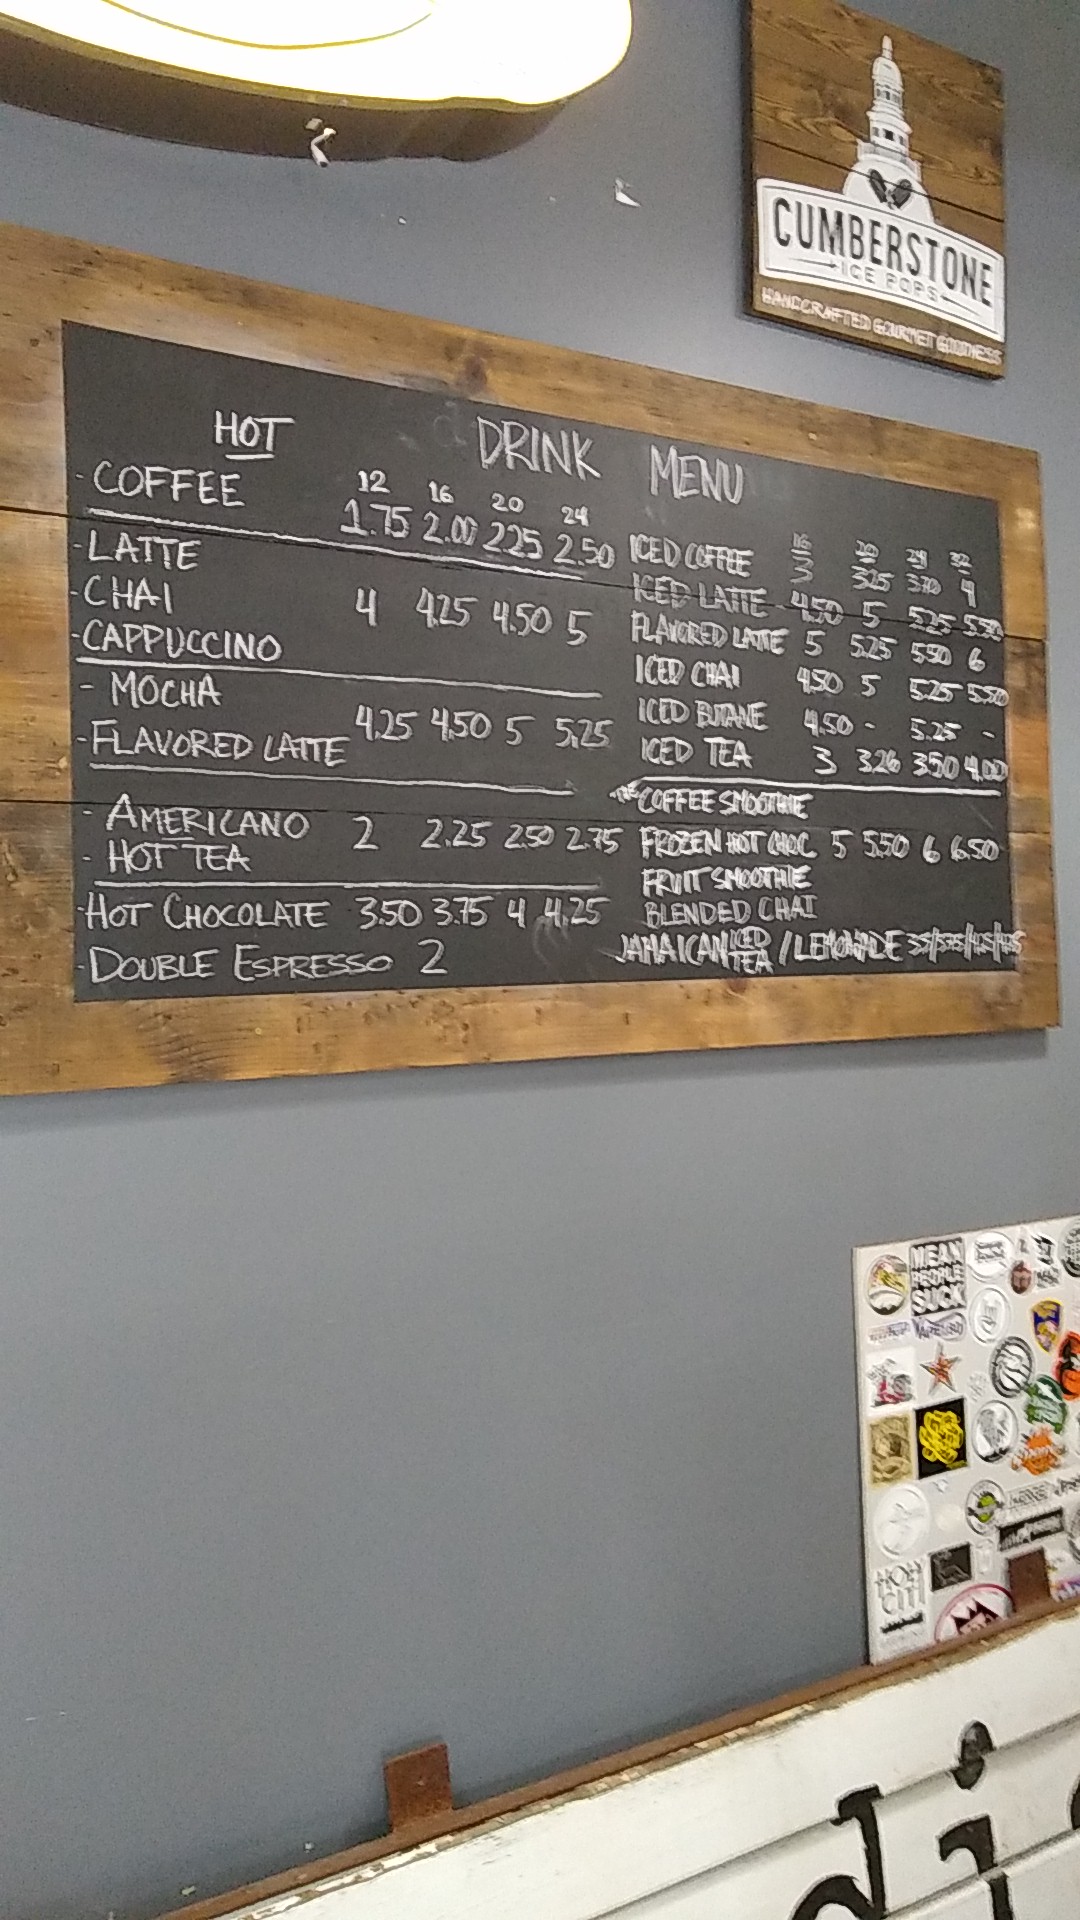 CUMBERSTONE
ICE POPS
HANDCRAFTED GOURMET GOODNESS
DRINK MENU
HOT
12 16 20 24
- COFFEE 1.75 2.00 225 2.50
- LATTE
- CHAI 4 4.25 4.50 5
- CAPPUCCINO
- MOCHA
4.25 4.50 5 5.25
- FLAVORED LATTE
- AMERICANO 2 2.25 2.50 2.75
- HOT TEA
- HOT CHOCOLATE 3.50 3.75 4 4.25
- DOUBLE ESPRESSO 2
16 20 24 32
ICED COFFEE 3 3.25 4
ICED LATTE - 4.50 5 5.25 5.50
FLAVORED LATTE 5 5.25 5.50 6
ICED CHAI 4.50 5 5.25 5.50
ICED BUTANE 4.50 - 5.25 -
ICED TEA 3 3.50 4.00
COFFEE SMOOTHIE
FROZEN HOT CHOC 5 5.50 6 6.50
FRUIT SMOOTHIE
BLENDED CHAI
JAMAICAN ICED TEA / LEMONADE
MEAN
PEOPLE
SUCK
di